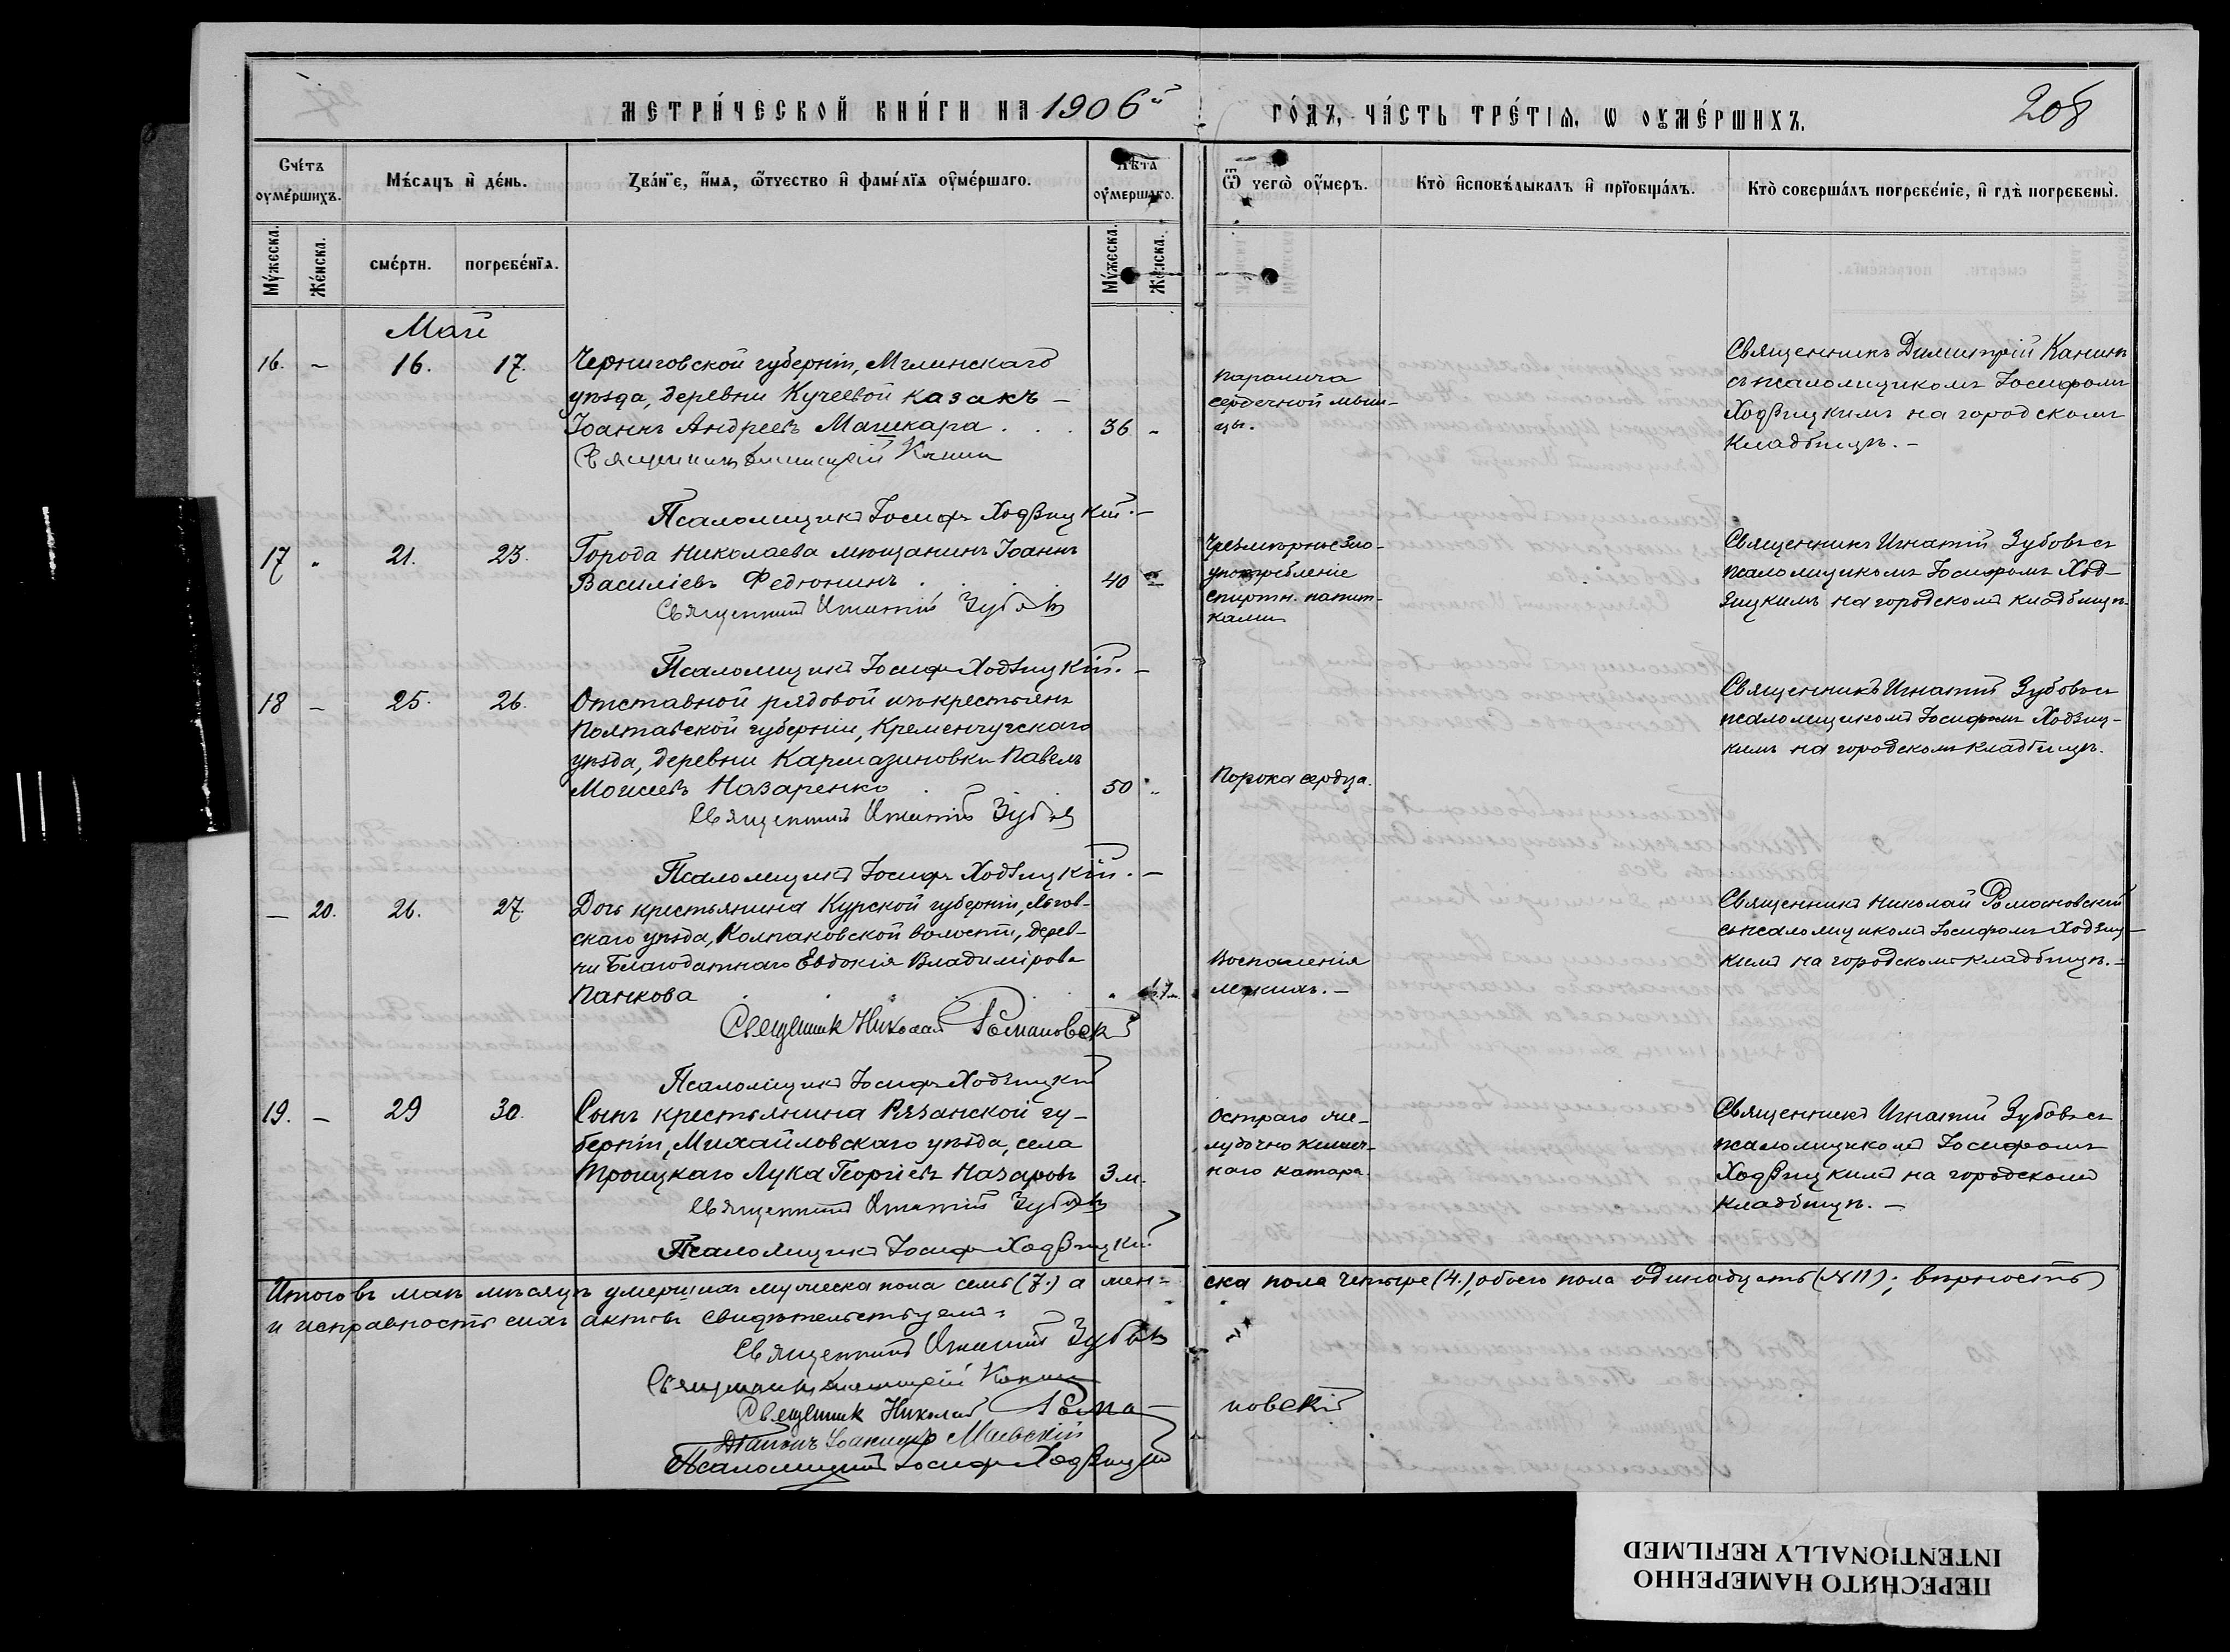 МЕТРИ́ЧЕСКОЙ КНИ́ГИ НА 1906й ГО́ДЪ, ЧА́СТЬ ТРЕ́ТІѦ, Ѡ ОУМЕ́РШИХЪ.
208
Сче́тъ оуме́ршихъ.
Мѣ́сѧцъ и де́нь.
Зва́нїе, и́мѧ, ѻ́тчество и фами́лїѧ оуме́ршаго.
Лѣта оуме́ршаго.
Ѿ чегѡ̀ оу́меръ.
Кто̀ исповѣ́дывалъ и прїобща́лъ.
Кто̀ соверша́лъ погребе́нїе, и гдѣ̀ погребены̀.
Му́жеска.
Же́нска.
сме́рти.
погребе́нїѧ.
Му́жеска.
Же́нска.
Май
16. – 16. 17.
Черниговской губерніи, Мглинскаго
уѣзда, деревни Кучеевой казакъ –
Іоаннъ Андреевъ Машкара . . . 36 "
Священникъ Димитрій Канин
Псаломщикъ Іосифъ Ходзицкій. –
паралича
сердечной мыш-
цы.
Священникъ Димитрій Канинъ
съ псаломщикомъ Іосифомъ
Ходзицкимъ на городскомъ
кладбищѣ. –
17 " 21. 23.
Города Николаева мѣщанинъ Іоаннъ
Василіевъ Федюнинъ . . . . 40
Священникъ Игнатій Зубовъ
Псаломщикъ Іосифъ Ходзицкій. –
Чрезмѣрное зло-
употребленіе
спиртн. напит-
ками
Священникъ Игнатій Зубовъ съ
псаломщикомъ Іосифомъ Ход-
зицкимъ на городскомъ кладбищѣ.
18 – 25. 26.
Отставной рядовой изъ крестьянъ
Полтавской губерніи, Кременчугскаго
уѣзда, деревни Кармазиновки Павелъ
Моисеевъ Назаренко . . 50 "
Священникъ Игнатій Зубовъ
Псаломщикъ Іосифъ Ходзицкій. –
Порока сердца.
Священникъ Игнатій Зубовъ съ
псаломщикомъ Іосифомъ Ходзиц-
кимъ на городскомъ кладбищѣ.
– 20. 26. 27.
Дочь крестьянина Курской губерніи, Льгов-
скаго уѣзда, Колпаковской волости, дерев-
ни Благодатнаго Евдокія Владимірова
Панкова . . . .
Священник Николай Романовскій
Псаломщикъ Іосифъ Ходзицкій
Воспаленія
легкихъ. –
Священникъ Николай Романовскій
съ псаломщикомъ Іосифомъ Ходзиц-
кимъ на городскомъ кладбищѣ. –
19. – 29 30.
Сынъ крестьянина Рязанской гу-
берніи, Михайловскаго уѣзда, села
Троицкаго Лука Георгіевъ Назаровъ 3 м.
Священникъ Игнатій Зубовъ
Псаломщикъ Іосифъ Ходзицкій
Остраго же-
лудочно кишеч-
наго катара.
Священникъ Игнатій Зубовъ съ
псаломщикомъ Іосифомъ
Ходзицкимъ на городскомъ
кладбищѣ. –
Итого въ маѣ мѣсяцѣ умершихъ мужеска пола семь (7.) а жен-ска пола четыре (4.), обоего пола одинадцать (№ 11); вѣрность
и исправность сихъ актовъ свидѣтельствуемъ:
Священникъ Игнатій Зубовъ
Священникъ Димитрій Канин
Священник Николай Рома-новскій
Діаконъ Іоакимъ Маевскій
Псаломщикъ Іосифъ Ходзицкій
ПЕРЕСНЯТО НАМЕРЕННО
INTENTIONALLY REFILMED